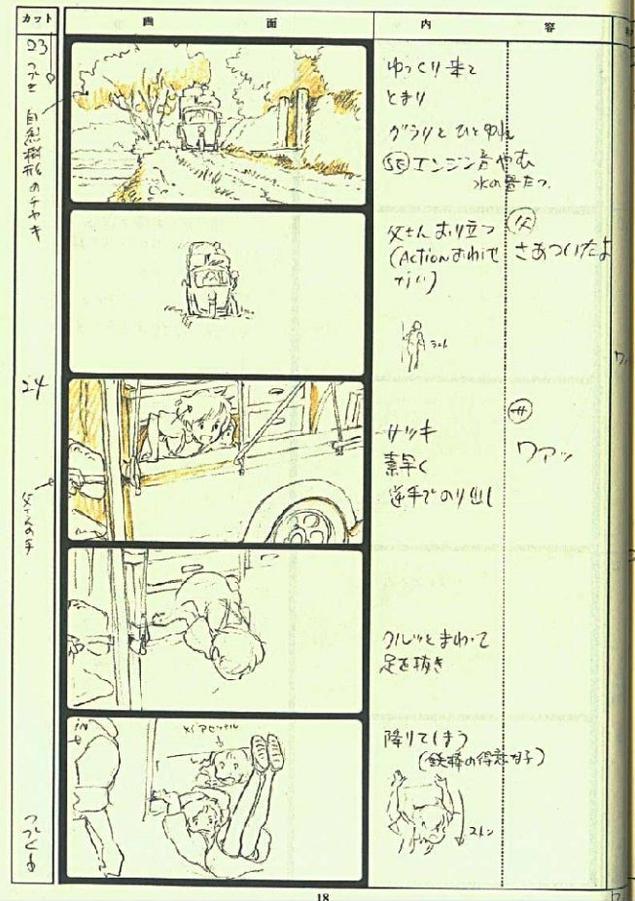 カット
画 面
内 容
23
つづき
自然樹形のチャキ
ゆっくり来て
とまり
グラリと ひとゆれ
SE エンジン音やむ
水の音たつ
父さん おり立つ
父
さあついたよ
24
父さんの手
サツキ
素早く
逆手でのり出し
サ
ワアッ
クルッとまわって
足を抜き
降りてしまう
(鉄棒の得意な子)
ストン
つづく
18